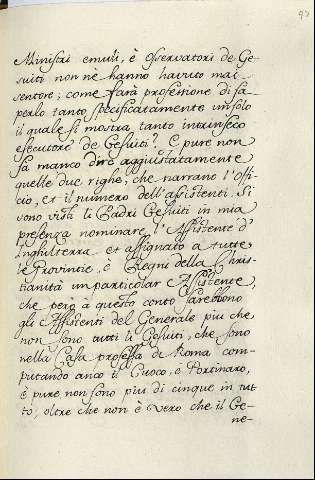 97
Ministri emuli, è Osservatori de Ge-
suiti non nè hanno havuto mai
sentore; come farà professione di sa-
perlo tanto specificatamente un solo
il quale si mostra tanto intrinseco
esecutore de Gesuiti? E pure non
sa manco dire aggiustatamente
quelle due righe, che narrano l'Offi-
cio, et il numero dell'Assistenti. Si
sono visti li Padri Gesuiti in mia
presenza nominare l'Assistente d'
Inghilterra et assignato a tutte
le Provintie, è Regni della Chris-
tianità un particolar Assistente,
che però a questo conto sarebbono
gli Assistenti del Generale piu che
non sono tutti li Gesuiti, che sono
nella Casa professa di Roma com-
putando anco il Cuoco, e Portinaro,
è pure non sono piu di cinque in tut-
to, oltre che non è vero che il Ge-
ne-